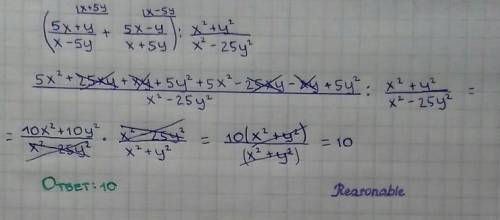 (5x+y/x-5y ^(x+5y) + 5x-y/x+5y ^(x-5y)) : x²+y²/x²-25y²
5x²+25xy+xy+5y²+5x²-25xy-xy+5y²/x²-25y² : x²+y²/x²-25y² =
= 10x²+10y²/x²-25y² · x²-25y²/x²+y² = 10(x²+y²)/(x²+y²) = 10
Ответ: 10
Reasonable